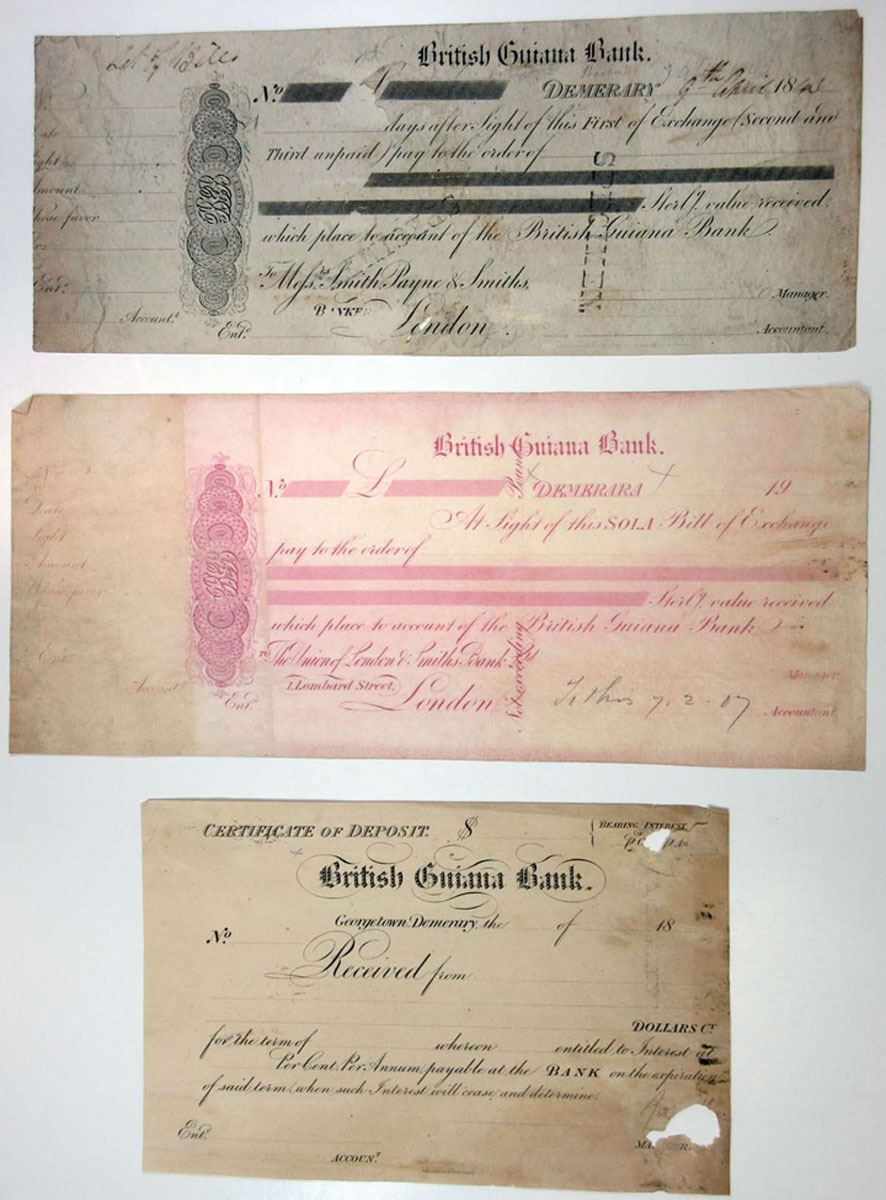 British Guiana Bank.
No £ DEMERARY 9th April 18
days after Sight of this First of Exchange (Second and
Third unpaid) pay to the order of
Sterlg. value received.
which place to account of the British Guiana Bank
To Messrs. Smith Payne & Smiths,
BANKERS
London.
Manager.
Accountant.
Date
Sight
Amount
Whose favor
Ent.
Account.t
Ent.d
British Guiana Bank.
No. £ DEMERARA 19
Pounds
At Sight of this SOLA Bill of Exchange
pay to the order of
Sterlg. value received
which place to account of the British Guiana Bank
To The Union of London & Smiths Bank Ld.
1, Lombard Street,
London
Not exceeding
7.2.07
Manager
Accountant.
No.
Date
Sight
Amount
Whose favor
Ent.
Account.t
Ent.d
CERTIFICATE OF DEPOSIT. $
BEARING INTEREST
British Guiana Bank.
Georgetown, Demerary, the of 18
No.
Received from
DOLLARS CY.
for the term of whereon entitled to Interest at
Per Cent. Per Annum, payable at the BANK on the expiration
of said term, when such Interest will cease and determine.
Ent.d
ACCOUN.T